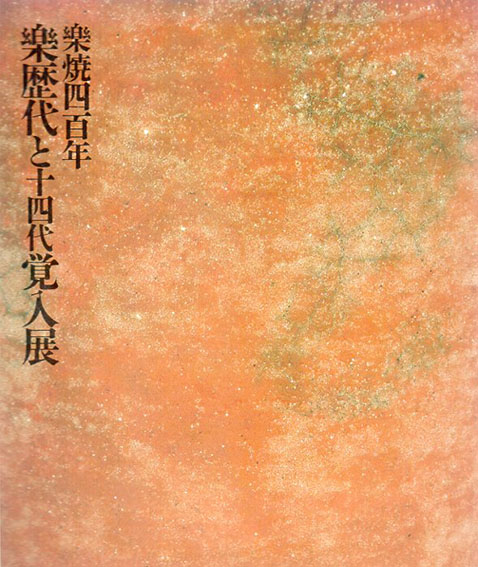 樂焼四百年
樂歴代と十四代覚入展